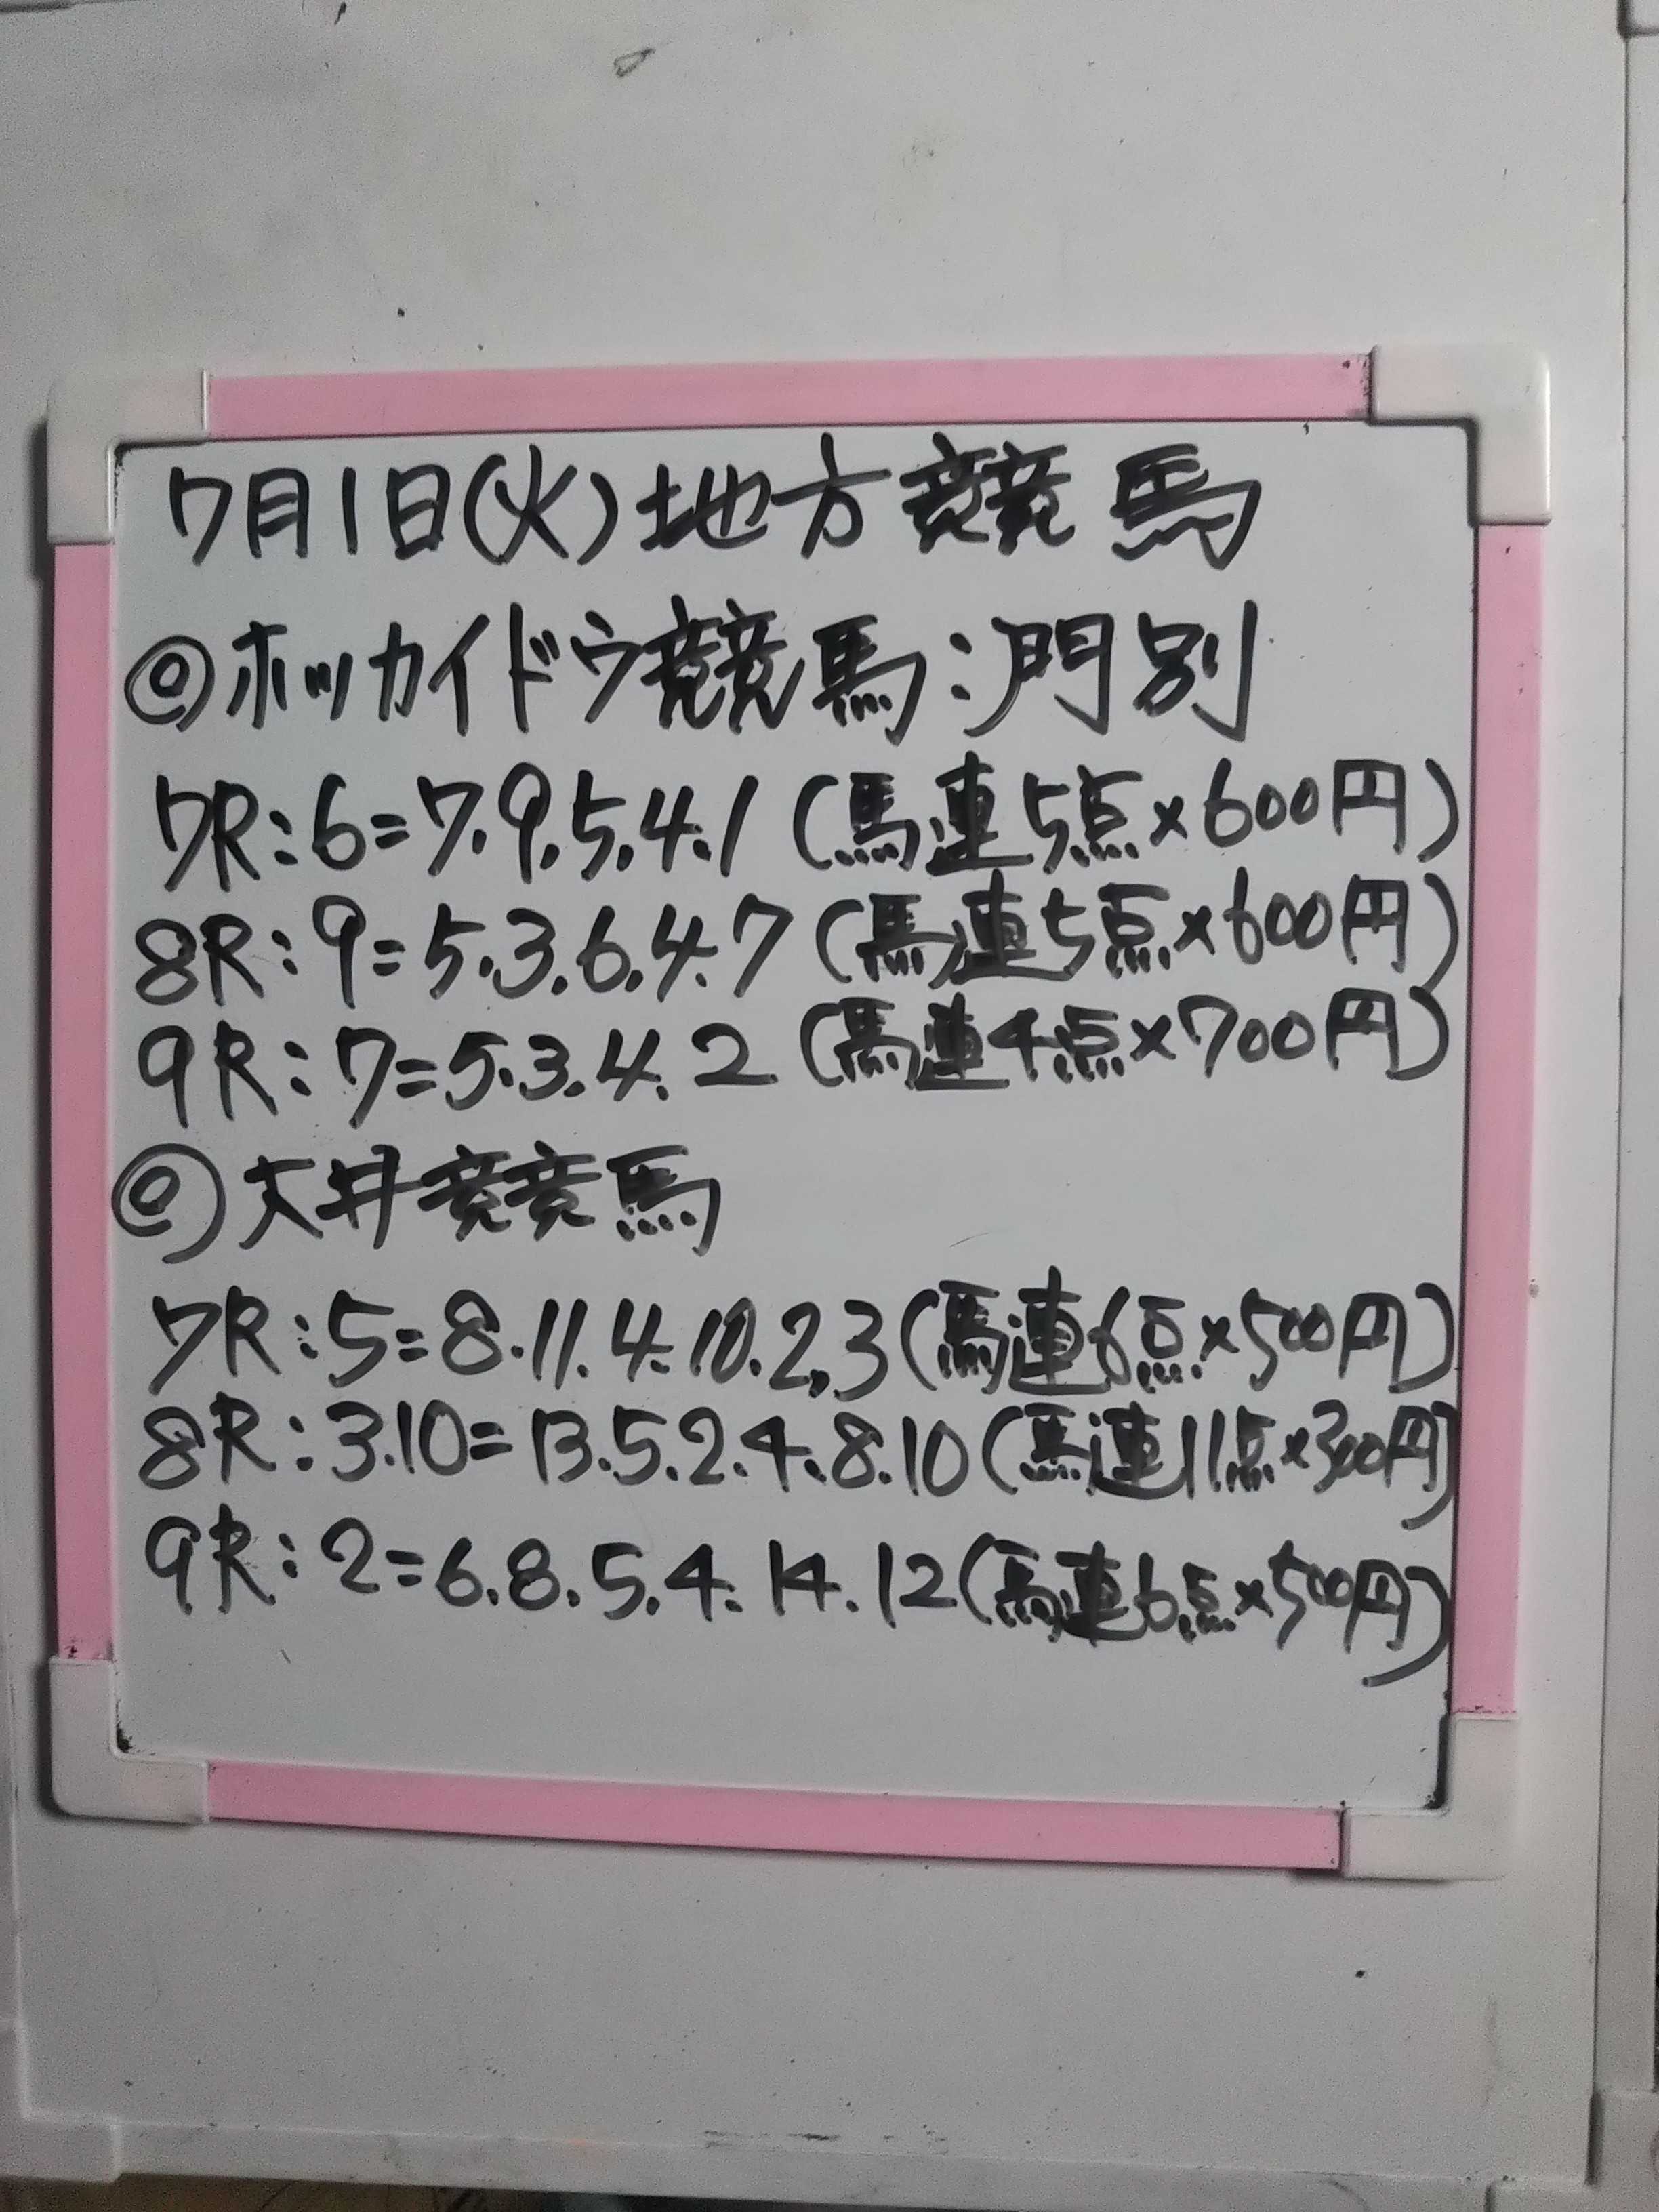 7月1日(火)地方競馬
◎ホッカイドウ競馬:門別
7R:6=7.9.5.4.1(馬連5点×600円)
8R:9=5.3.6.4.7(馬連5点×600円)
9R:7=5.3.4.2(馬連4点×700円)
◎大井競馬
7R:5=8.11.4.10.2,3(馬連6点×500円)
8R:3.10=13.5.2.4.8.10(馬連11点×300円)
9R:2=6.8.5.4.14.12(馬連6点×500円)